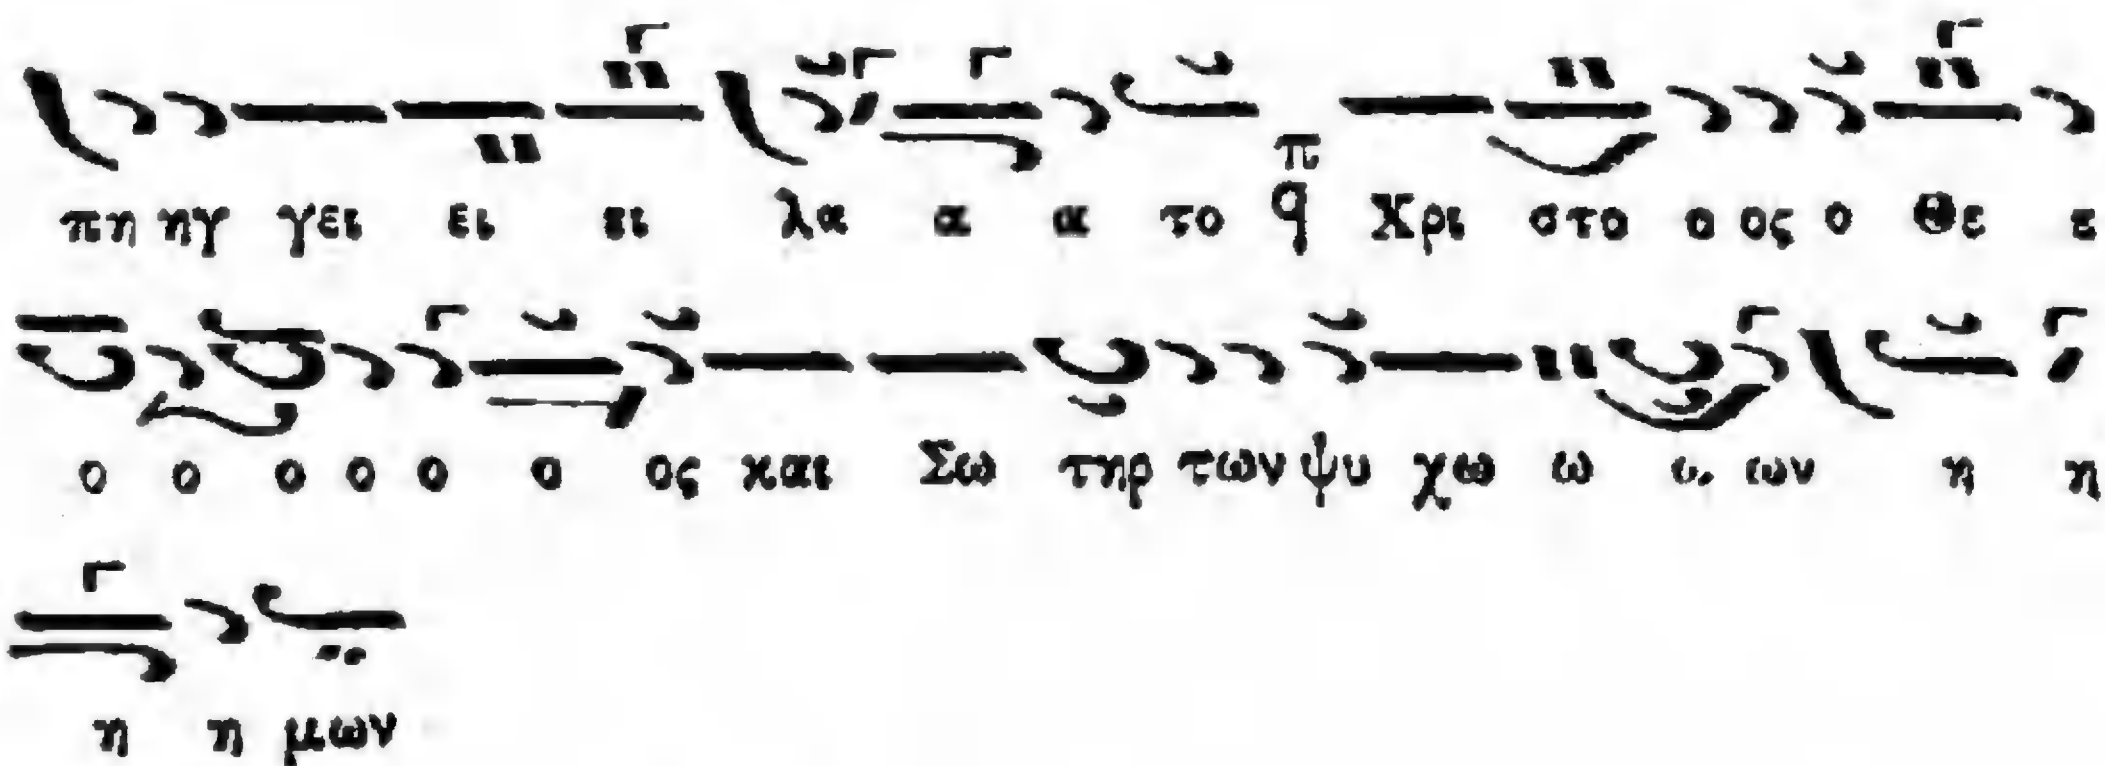 πη ηγ γει ει ει λα α α το π q Χρι στο ο ος ο Θε ε
ο ο ο ο ο ο ος και Σω τηρ των ψυ χω ω ω ων η η
η η μων